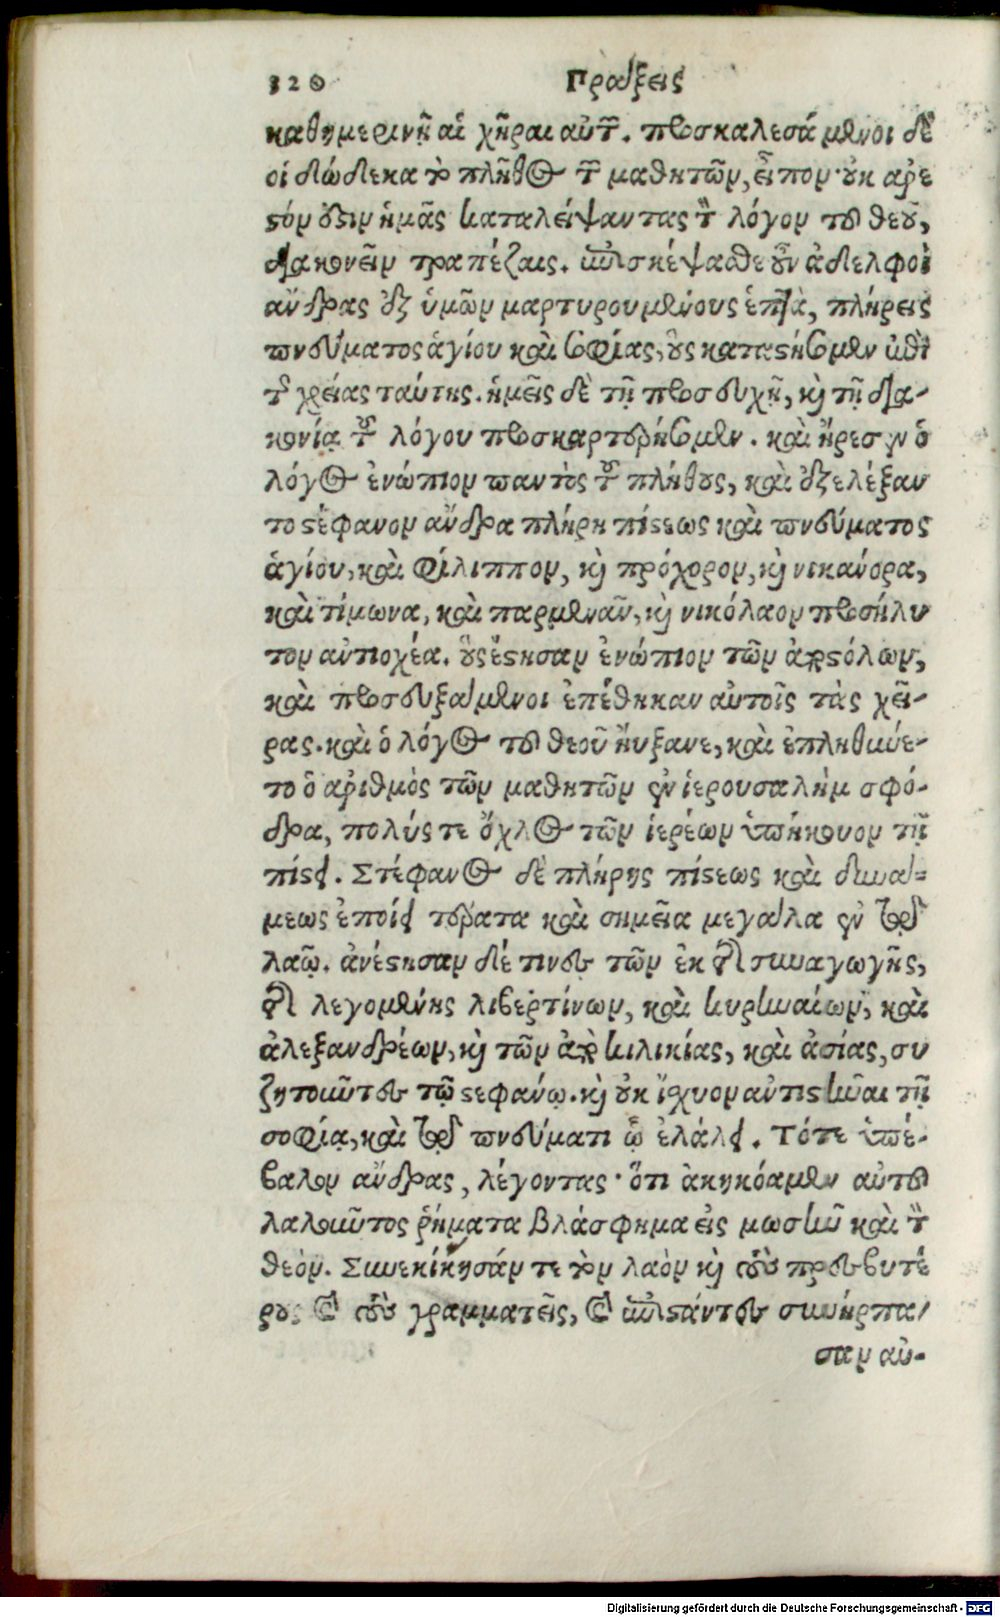 320 Πράξεις
καθημερινῇ αἱ χῆραι αὐτῶν. προσκαλεσάμενοι δὲ
οἱ δώδεκα τὸ πλῆθος τῶν μαθητῶν, εἶπον· οὐκ ἀρε
στόν ἐστιν ἡμᾶς καταλείψαντας τὸν λόγον τοῦ θεοῦ,
διακονεῖν τραπέζαις. ἐπισκέψασθε οὖν ἀδελφοὶ
ἄνδρας ἐξ ὑμῶν μαρτυρουμένους ἑπτὰ, πλήρεις
πνεύματος ἁγίου καὶ σοφίας, οὓς καταστήσωμεν ἐπὶ
τῆς χρείας ταύτης. ἡμεῖς δὲ τῇ προσευχῇ, καὶ τῇ δια-
κονίᾳ τοῦ λόγου προσκαρτερήσωμεν. καὶ ἤρεσεν ὁ
λόγος ἐνώπιον παντὸς τοῦ πλήθους, καὶ ἐξελέξαν
το στέφανον ἄνδρα πλήρη πίστεως καὶ πνεύματος
ἁγίου, καὶ φίλιππον, καὶ πρόχορον, καὶ νικάνορα,
καὶ τίμωνα, καὶ παρμενᾶν, καὶ νικόλαον προσήλυ
τον ἀντιοχέα. οὓς ἔστησαν ἐνώπιον τῶν ἀποστόλων,
καὶ προσευξάμενοι ἐπέθηκαν αὐτοῖς τὰς χεῖ-
ρας. καὶ ὁ λόγος τοῦ θεοῦ ἤυξανε, καὶ ἐπληθύνε-
το ὁ ἀριθμὸς τῶν μαθητῶν ἐν ἱερουσαλὴμ σφό-
δρα, πολύς τε ὄχλος τῶν ἱερέων ὑπήκουον τῇ
πίστει. Στέφανος δὲ πλήρης πίστεως καὶ δυνά-
μεως ἐποίει τέρατα καὶ σημεῖα μεγάλα ἐν τῷ
λαῷ. ἀνέστησαν δέ τινες τῶν ἐκ τῆς συναγωγῆς,
τῆς λεγομένης λιβερτίνων, καὶ κυρηναίων, καὶ
ἀλεξανδρέων, καὶ τῶν ἀπὸ κιλικίας, καὶ ἀσίας, συ
ζητοῦντες τῷ στεφάνῳ. καὶ οὐκ ἴχυον ἀντιστῆναι τῇ
σοφίᾳ, καὶ τῷ πνεύματι ᾧ ἐλάλει. Τότε ὑπέ-
βαλον ἄνδρας, λέγοντας· ὅτι ἀκηκόαμεν αὐτοῦ
λαλοῦντος ῥήματα βλάσφημα εἰς μωσῆν καὶ τὸν
θεόν. Συνεκίνησάν τε τὸν λαὸν καὶ τοὺς πρεσβυτέ
ρους καὶ τοὺς γραμματεῖς, καὶ ἐπιστάντες συνήρπα-
σαν αὐ-